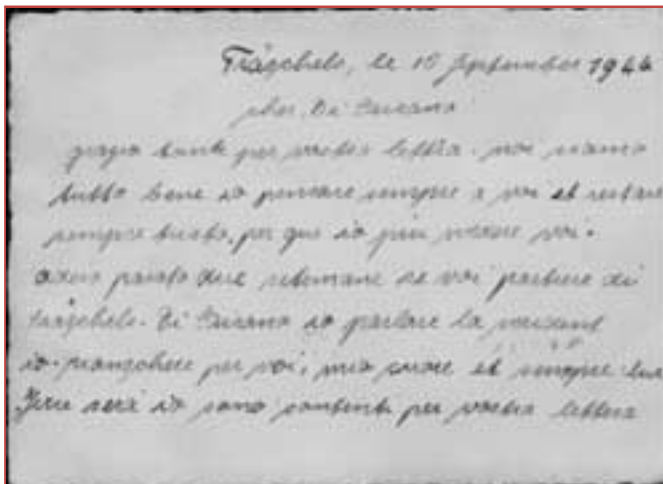 le 10 September 1944
cher Di Lucano
grazia tante per vostra lettra. noi siamo
tutto bene io pensare sempre a voi et restare
sempre triste, per que io più vedere voi.
passato due setimane se voi partire di
Di Lucano io parlare la
io pianghere per voi, mio cuore et sempre
sera io sono contenti per vostra lettera